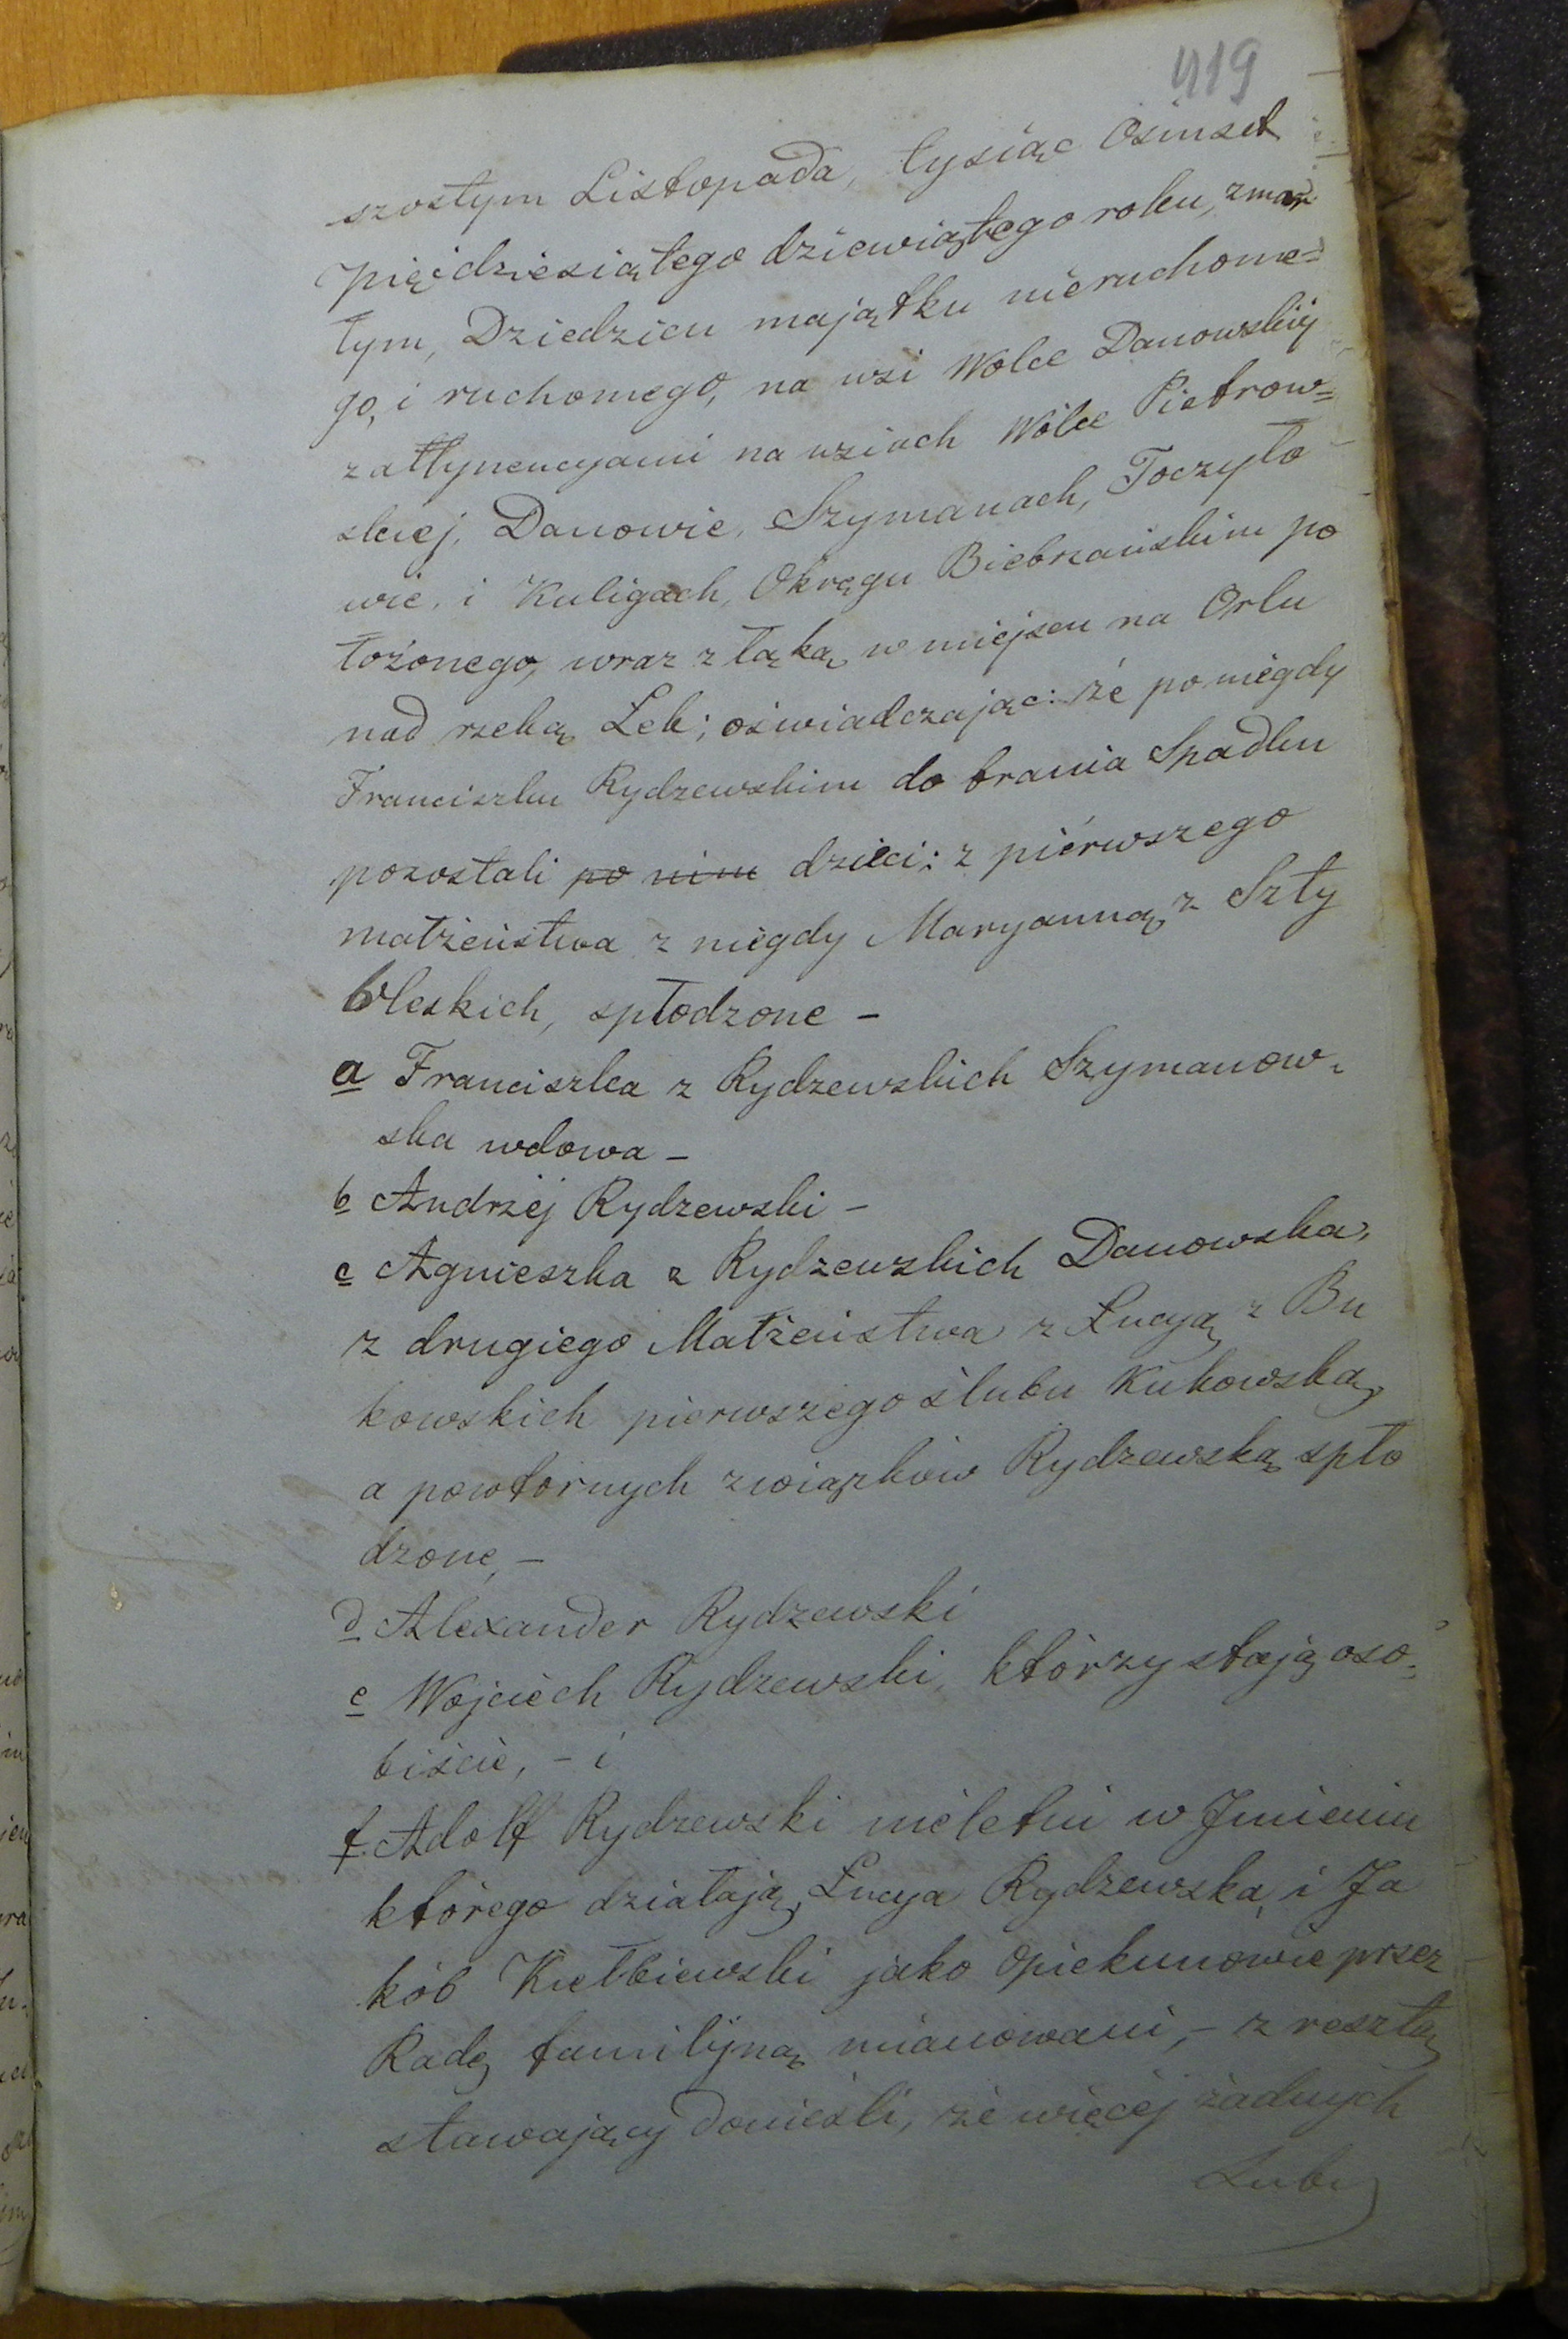 419
szostym Listopada, tysiąc Osimset
pięćdziesiątego dziewiątego roku, zmar
łym, Dziedzicu majątku nieruchome=
go, i ruchomego, na wsi Wolce Danowskiej
z attynencyami na wsiach Wólce Pietrow=
skiej, Danowie, Szymanach, Toczyło
wie, i Kuligach, Okręgu Biebrzańskim po
łożonego, wraz z łąką, w miejscu na Orlu
nad rzeką Łek; oświadczając: że po niegdy
Franciszku Rydzewskim do brania Spadku
pozostali po nim dzieci: z piérwszego
małżeństwa z niegdy Maryanną, z Szły
bleskich, spłodzone –
a Franciszka z Rydzewskich Szymanow-
ska wdowa –
b Andrzéj Rydzewski –
c Agnieszka z Rydzewskich Danowska,
z drugiego Małżeństwa z Łucyą z Bu
kowskich pierwszego ślubu Kukowską,
a powtórnych związków Rydzewską spło
dzone, –
d Alexander Rydzewski
e Wojciech Rydzewski, którzy stają oso-
biście, – i
f. Adolf Rydzewski nieletni w Jmieniu
którego działają, Łucya Rydzewska, i Ja
kób Kiełbiewski jako Opiekunowie przez
Radę familijną mianowani, – z resztą
stawający donieśli, że więcéj żadnych